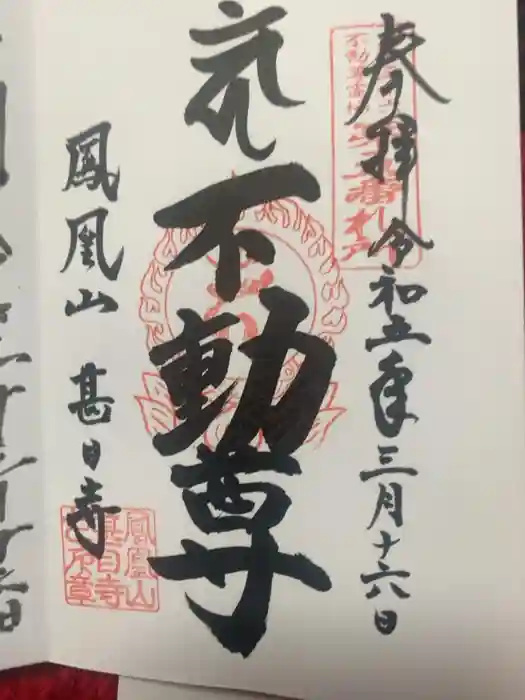 奉拝 令和五年三月十六日
不動尊
鳳凰山 甚目寺
鳳凰山
甚目寺